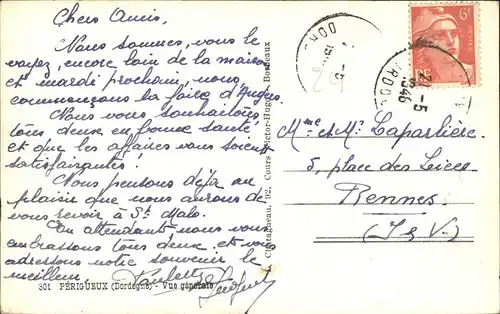 Chers Amis,
Nous sommes, vous le
voyez, encore loin de la maison
et mardi prochain, nous
commençons la foire d'Angers.
Nous vous souhaitons
tous deux en bonne santé
et que les affaires vous soient
satisfaisantes!
Nous pensons déjà au
plaisir que nous aurons de
vous revoir à St Malo.
En attendant nous vous
embrassons tous deux et vous
adressons notre souvenir le
meilleur.
301 PÉRIGUEUX (Dordogne) - Vue générale
Chatagneau, 92, Cours Victor-Hugo - Bordeaux
6F
-5
1946
Mme et Mr Laparlière
5, place des Lices
Rennes
(I & V.)